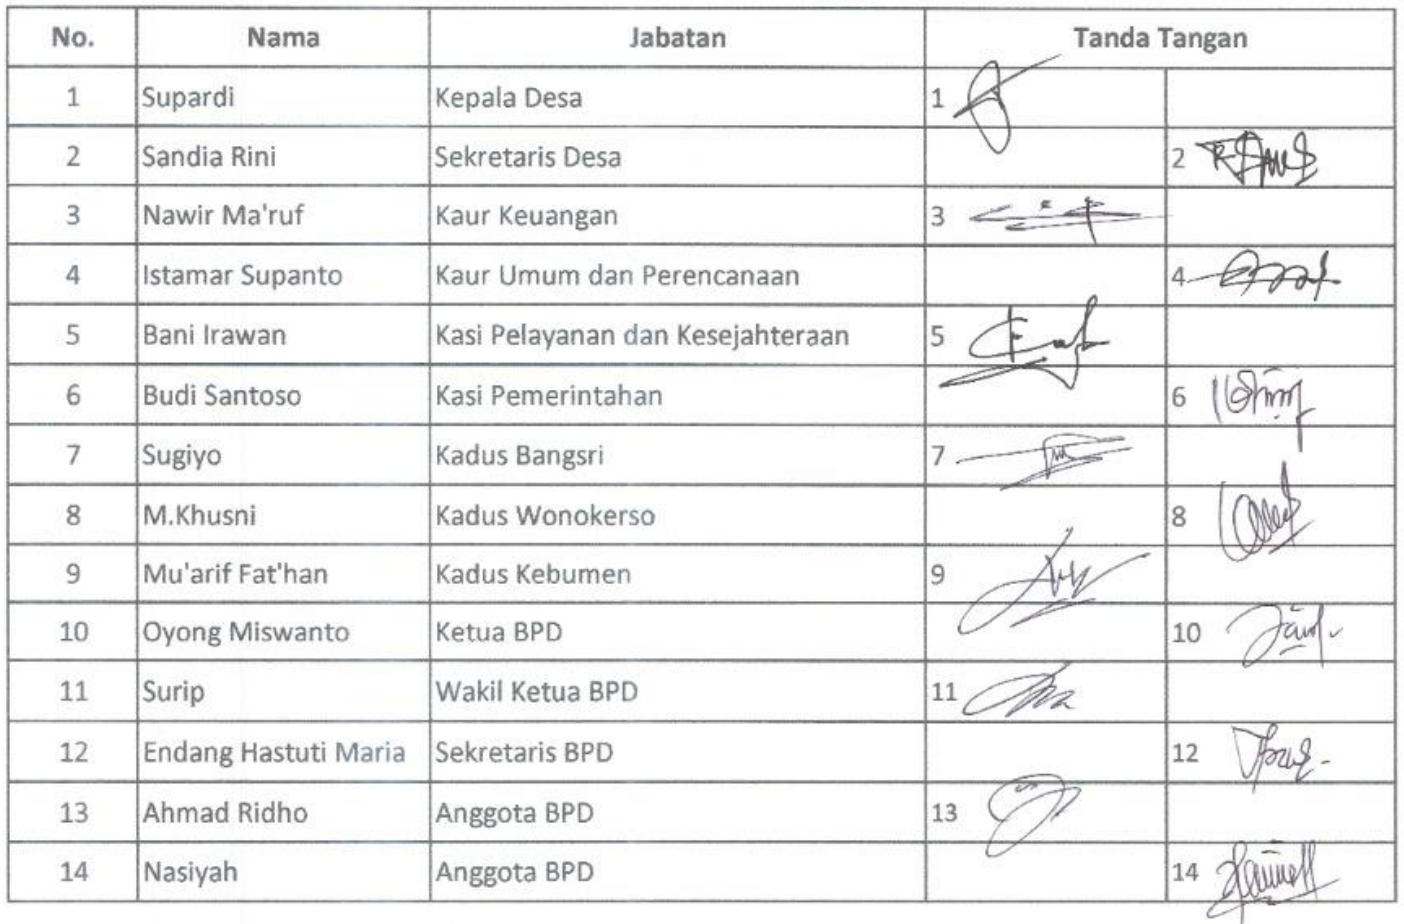 No. Nama Jabatan Tanda Tangan
1 Supardi Kepala Desa 1
2 Sandia Rini Sekretaris Desa 2
3 Nawir Ma'ruf Kaur Keuangan 3
4 Istamar Supanto Kaur Umum dan Perencanaan 4
5 Bani Irawan Kasi Pelayanan dan Kesejahteraan 5
6 Budi Santoso Kasi Pemerintahan 6
7 Sugiyo Kadus Bangsri 7
8 M.Khusni Kadus Wonokerso 8
9 Mu'arif Fat'han Kadus Kebumen 9
10 Oyong Miswanto Ketua BPD 10
11 Surip Wakil Ketua BPD 11
12 Endang Hastuti Maria Sekretaris BPD 12
13 Ahmad Ridho Anggota BPD 13
14 Nasiyah Anggota BPD 14